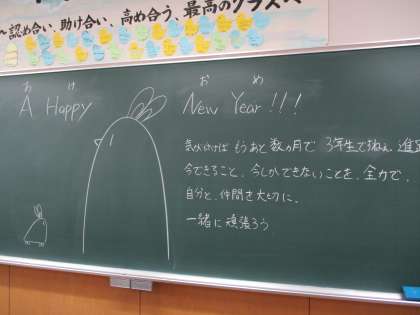 ～認め合い、助け合い、高め合う、最高のクラスへ
あ け お め
A Happy New Year!!!
気が付けばもうあと数ヵ月で3年生ですねぇ。進
今できること、今しかできないことを、全力で。
自分と、仲間を大切に。
一緒に頑張ろう